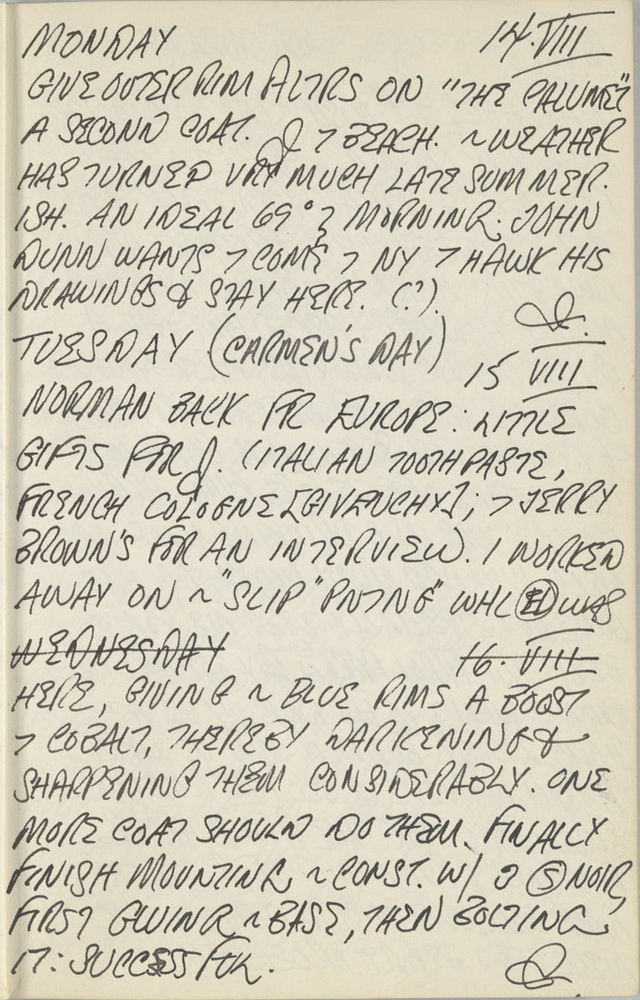 MONDAY 14·VIII
GIVE OUTER RIM ALTRS ON "THE CALUMET"
A SECOND COAT. J > BEACH. ~ WEATHER
HAS TURNED VRY MUCH LATE SUMMER.
ISH. AN IDEAL 69° MORNING. JOHN
DUNN WANTS > COME > NY > HAWK HIS
DRAWINGS & STAY HERE. (?).
TUESDAY (CARMEN'S DAY) 15 VIII
NORMAN BACK FR EUROPE: LITTLE
GIFTS FOR J. (ITALIAN TOOTHPASTE,
FRENCH COLOGNE [GIVENCHY]; > JERRY
BROWN'S FOR AN INTERVIEW. I WORKED
AWAY ON ~ "SLIP" PNTNG" WHL WAS
WEDNESDAY 16·VIII
HERE, GIVING ~ BLUE RIMS A BOOST
> COBALT, THEREBY DARKENING &
SHARPENING THEM CONSIDERABLY. ONE
MORE COAT SHOULD DO THEM. FINALLY
FINISH MOUNTING ~ CONST. W/ NOIR,
FIRST GLUING ~ BASE, THEN BOLTING
IT: SUCCESS FOR.